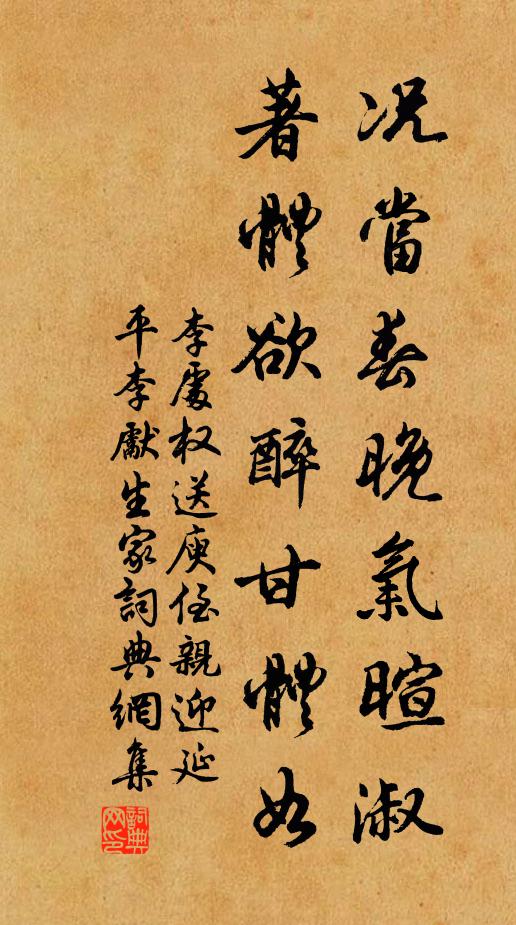 况當春晚氣暄淑
著體欲醉甘體如
李處权送庾侄親迎延
平李獻生家詞典網集
詞典网印